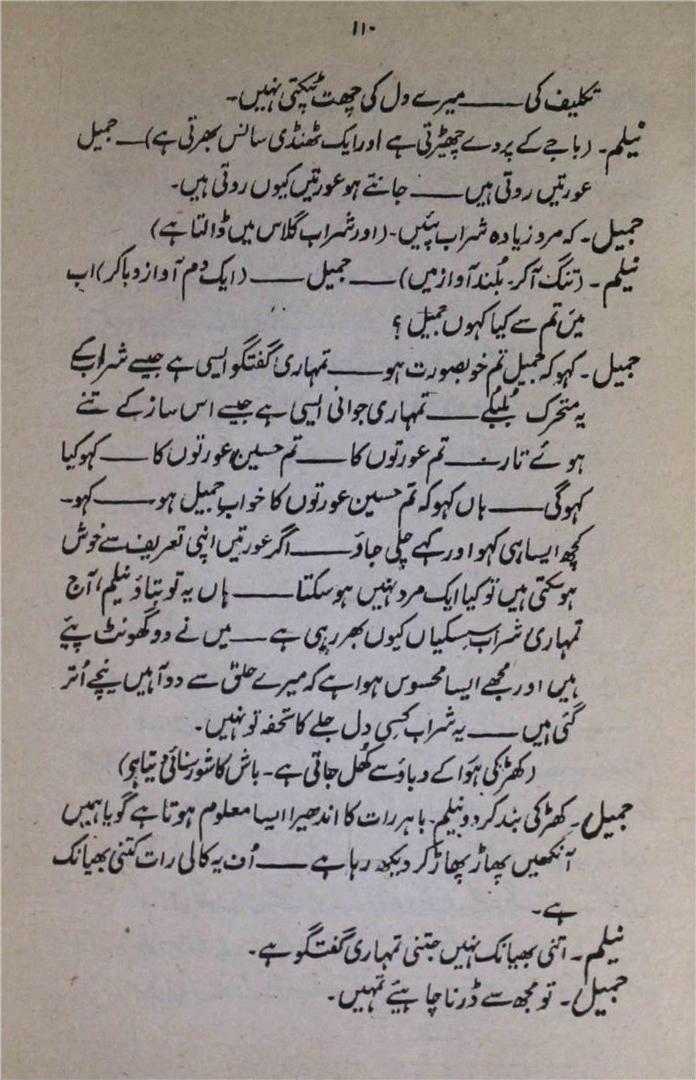 ۱۱۰
تکلیف کی ــــ میرے دل کی چھت ٹپکتی نہیں۔
نیلم۔ (باجے کے پردے چھیڑتی ہے اور ایک ٹھنڈی سانس بھرتی ہے) ــــ جمیل
عورتیں روتی ہیں ــــ جانتے ہو عورتیں کیوں روتی ہیں۔
جمیل۔ کہ مرد زیادہ شراب پئیں۔ (اور شراب گلاس میں ڈالتا ہے)
نیلم۔ (تنگ آ کر۔ بُلند آواز میں) ــــ جمیل ــــ (ایک دم آواز دبا کر) اب
میں تم سے کیا کہوں جمیل ؟
جمیل۔ کہو کہ جمیل تم خوبصورت ہو ــــ تمہاری گفتگو ایسی ہے جیسے شراب کے
یہ متحرک بُلبلے ــــ تمہاری جوانی ایسی ہے جیسے اس ساز کے تنے
ہوئے تار ــــ تم عورتوں کا ــــ تم حسین عورتوں کا ــــ کہو کیا
کہو گی ــــ ہاں کہو کہ تم حسین عورتوں کا خواب جمیل ہو ــــ کہو۔
کچھ ایسا ہی کہو اور کہے چلی جاؤ ــــ اگر عورتیں اپنی تعریف سے خوش
ہو سکتی ہیں تو کیا ایک مرد نہیں ہو سکتا ــــ ہاں یہ تو بتاؤ نیلم، آج
تمہاری شراب سسکیاں کیوں بھر رہی ہے ــــ میں نے دو گھونٹ پئے
ہیں اور مجھے ایسا محسوس ہوا ہے کہ میرے حلق سے دو آہیں نیچے اُتر
گئی ہیں ــــ یہ شراب کسی دل جلے کا تحفہ تو نہیں۔
(کھڑکی ہوا کے دباؤ سے کُھل جاتی ہے۔ بارش کا شور سنائی دیتا ہے)
جمیل۔ کھڑکی بند کر دو نیلم۔ باہر رات کا اندھیرا ایسا معلوم ہوتا ہے گویا ہمیں
آنکھیں پھاڑ پھاڑ کر دیکھ رہا ہے ــــ اُف یہ کالی رات کتنی بھیانک
ہے۔
نیلم۔ اتنی بھیانک نہیں جتنی تمہاری گفتگو ہے۔
جمیل۔ تو مجھ سے ڈرنا چاہیئے تمہیں۔